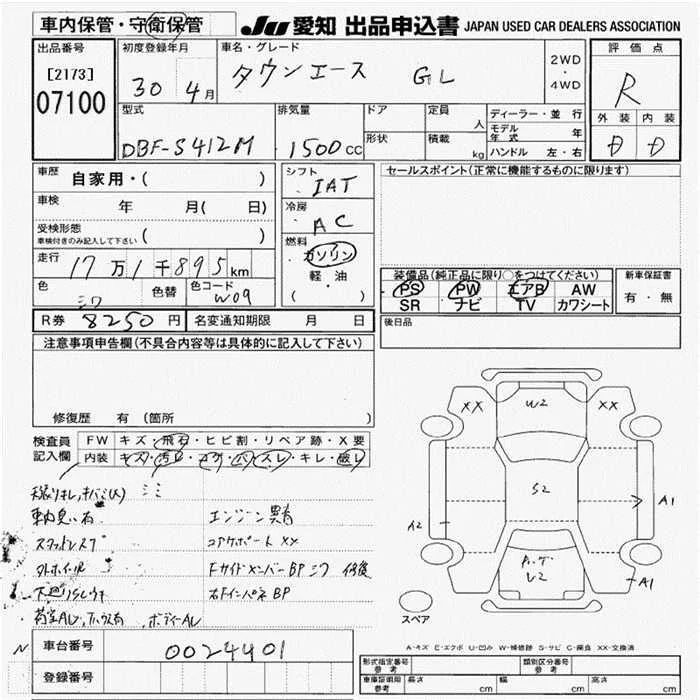 車内保管・守衛保管
JU 愛知 出品申込書 JAPAN USED CAR DEALERS ASSOCIATION
出品番号
[2173]
07100
初度登録年月
30 4月
車名・グレード
タウンエース GL
2WD
・
4WD
評価点
R
外装 内装
D D
型式
DBF-S412M
排気量
1500cc
ドア
形状
定員
人
積載
kg
ディーラー・並行
モデル年式 年
ハンドル 左・右
車歴
自家用・( )
車検
年 月( 日)
受検形態
車検付きのみ記入して下さい ( )
走行
17万1千895km
色
シワ
色替
色コード
W09
シフト
IAT
冷房
AC
燃料
ガソリン
軽・油
( )
セールスポイント(正常に機能するものに限ります)
装備品(純正品に限り○をつけてください)
PS PW エアB AW
SR ナビ TV カワシート
新車保証書
有・無
R券 8250円
名変通知期限 月 日
後日品
注意事項申告欄(不具合内容等は具体的に記入して下さい)
修復歴 有 (箇所 )
検査員記入欄
FW キズ・飛石・ヒビ割・リペア跡・X要
内装 キズ・汚レ・コゲ・穴・スレ・キレ・破レ
エンジン異音
スタッドレス
コアサポート XX
外ホイール
FサイドメンバーBPシワ 修復
右ドインパネBP
荷室AL ボディーAL
XX
W2
XX
S2
A2
A1
A1
W2
スペア
A-キズ E-エクボ U-凹み W-補修跡 S-サビ C-腐食 XX-交換済
車台番号
0024401
登録番号
N
形式指定番号
参考
類別区分番号
参考
車庫証明用
参考
長さ cm
幅 cm
高さ cm